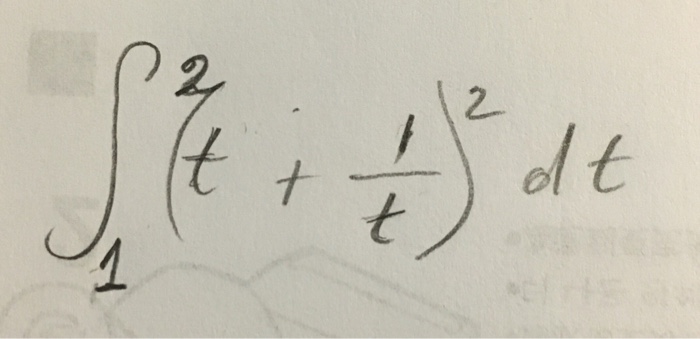 ∫₁² (t + 1/t)² dt